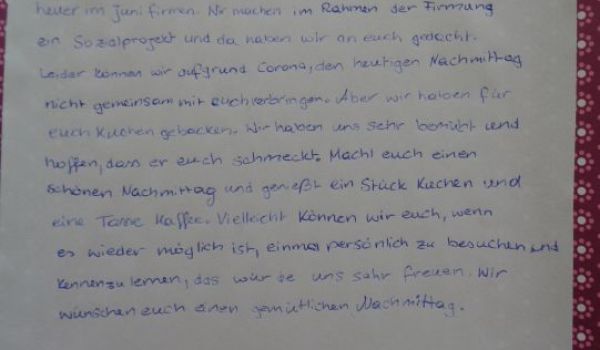 heuer im Juni firmen. Wir machen im Rahmen der Firmung
ein Sozialprojekt und da haben wir an euch gedacht.
Leider können wir aufgrund Corona, den heutigen Nachmittag
nicht gemeinsam mit euch verbringen. Aber wir haben für
euch Kuchen gebacken. Wir haben uns sehr bemüht und
hoffen, dass er euch schmeckt. Macht euch einen
schönen Nachmittag und genießt ein Stück Kuchen und
eine Tasse Kaffee. Vielleicht können wir euch, wenn
es wieder möglich ist, einmal persönlich zu besuchen und
kennenzulernen, das würde uns sehr freuen. Wir
wünschen euch einen gemütlichen Nachmittag.